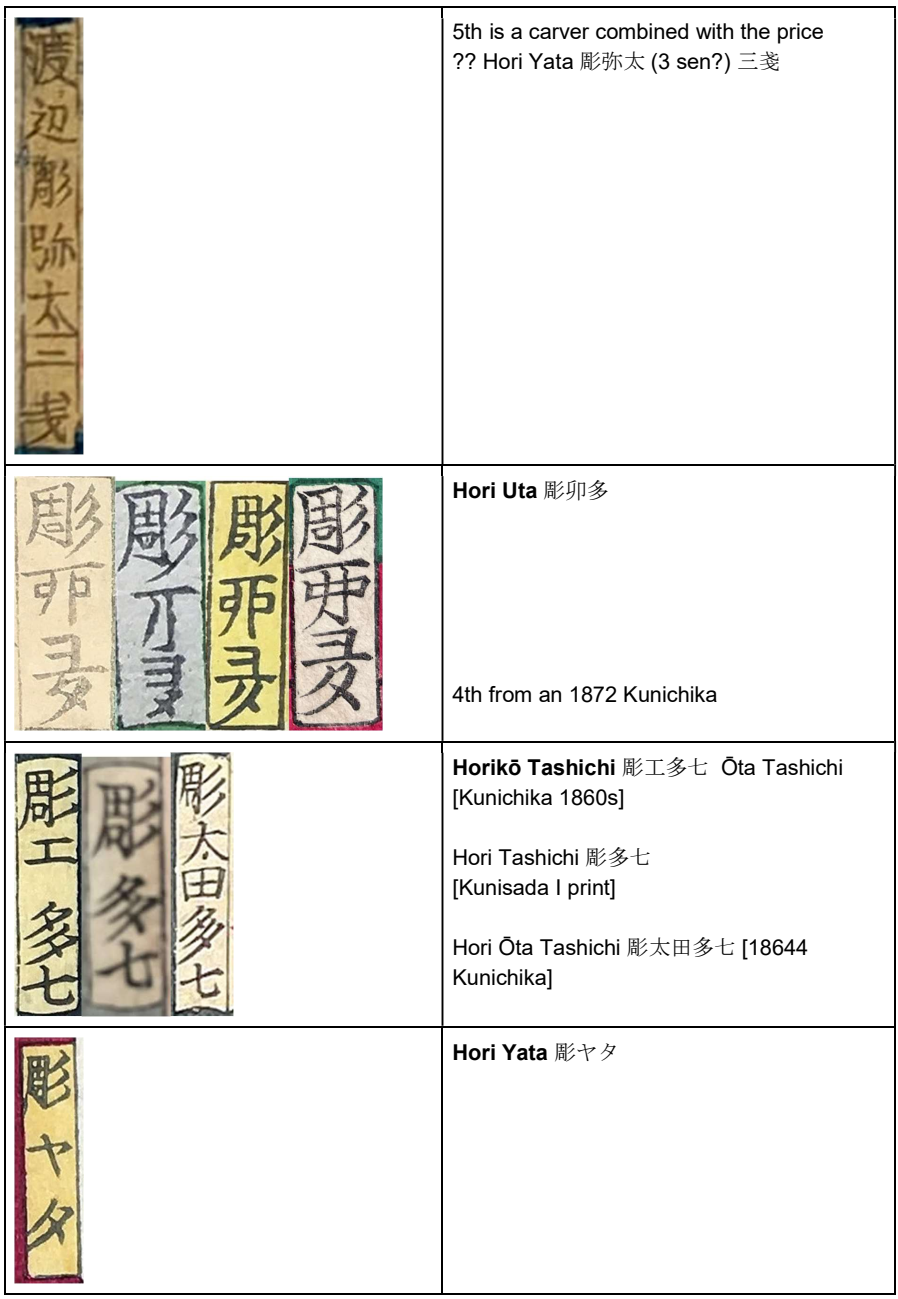 渡辺彫弥太二戔
5th is a carver combined with the price
?? Hori Yata 彫弥太 (3 sen?) 三戔
彫
彫
彫
彫
Hori Uta 彫卯多
4th from an 1872 Kunichika
彫工多七
彫多七
彫太田多七
Horikō Tashichi 彫工多七 Ōta Tashichi
[Kunichika 1860s]
Hori Tashichi 彫多七
[Kunisada I print]
Hori Ōta Tashichi 彫太田多七 [18644
Kunichika]
彫ヤタ
Hori Yata 彫ヤタ